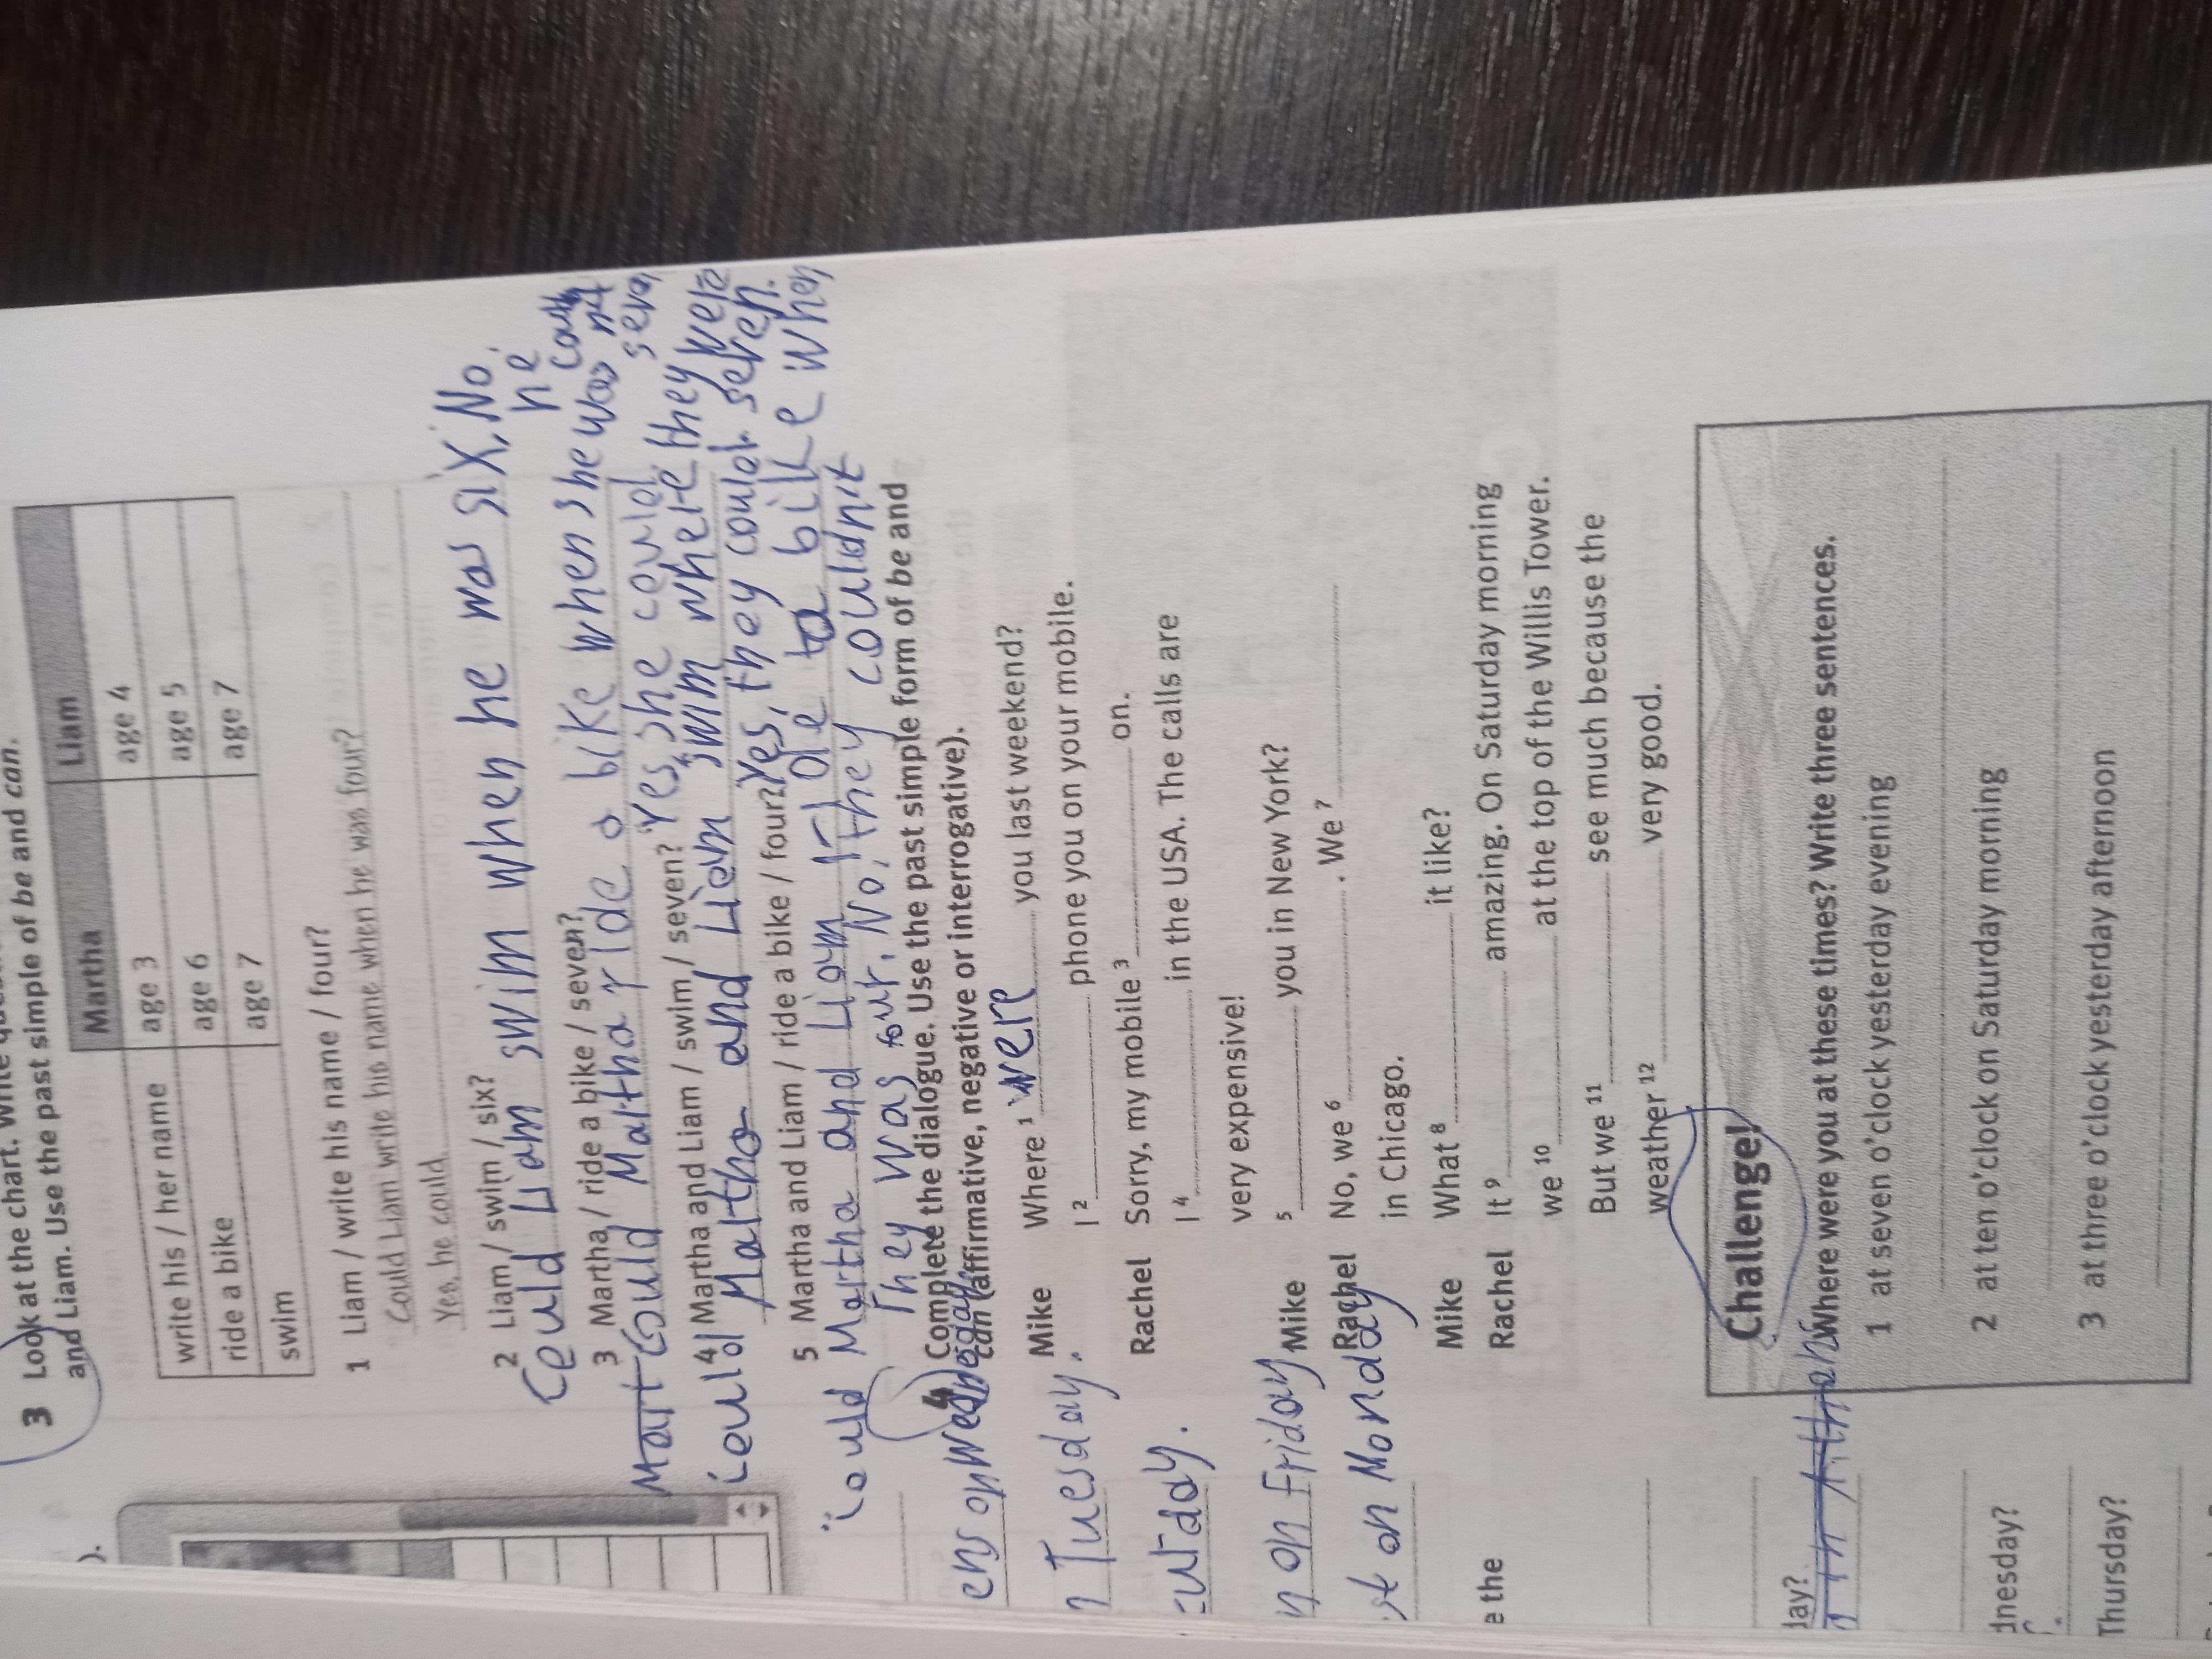 3 Look at the chart. Write
and Liam. Use the past simple of be and can.
Martha Liam
write his / her name age 3 age 4
ride a bike age 6 age 5
swim age 7 age 7
1 Liam / write his name / four?
Could Liam write his name when he was four?
Yes, he could.
2 Liam / swim / six?
Could Liam swim when he was six. No,
he
3 Martha / ride a bike / seven?
Mart Could Martha ride a bike when she was
seven
4 Martha and Liam / swim / seven? Yes, she could.
Could Martha and Liam swim where they were
seven.
5 Martha and Liam / ride a bike / four? Yes, they could.
Could Martha and Liam a bike when
They was four. No, they couldn't
4 Complete the dialogue. Use the past simple form of be and
can (affirmative, negative or interrogative).
Mike Where 1 were you last weekend?
I 2 phone you on your mobile.
Rachel Sorry, my mobile 3 on.
I 4 in the USA. The calls are
very expensive!
Mike 5 you in New York?
Rachel No, we 6 . We 7
in Chicago.
Mike What 8 it like?
Rachel It 9 amazing. On Saturday morning
we 10 at the top of the Willis Tower.
But we 11 see much because the
weather 12 very good.
Challenge!
Where were you at these times? Write three sentences.
1 at seven o'clock yesterday evening
2 at ten o'clock on Saturday morning
3 at three o'clock yesterday afternoon
).
Tuesday.
on Friday
on Monday
e the
day?
dnesday?
Thursday?